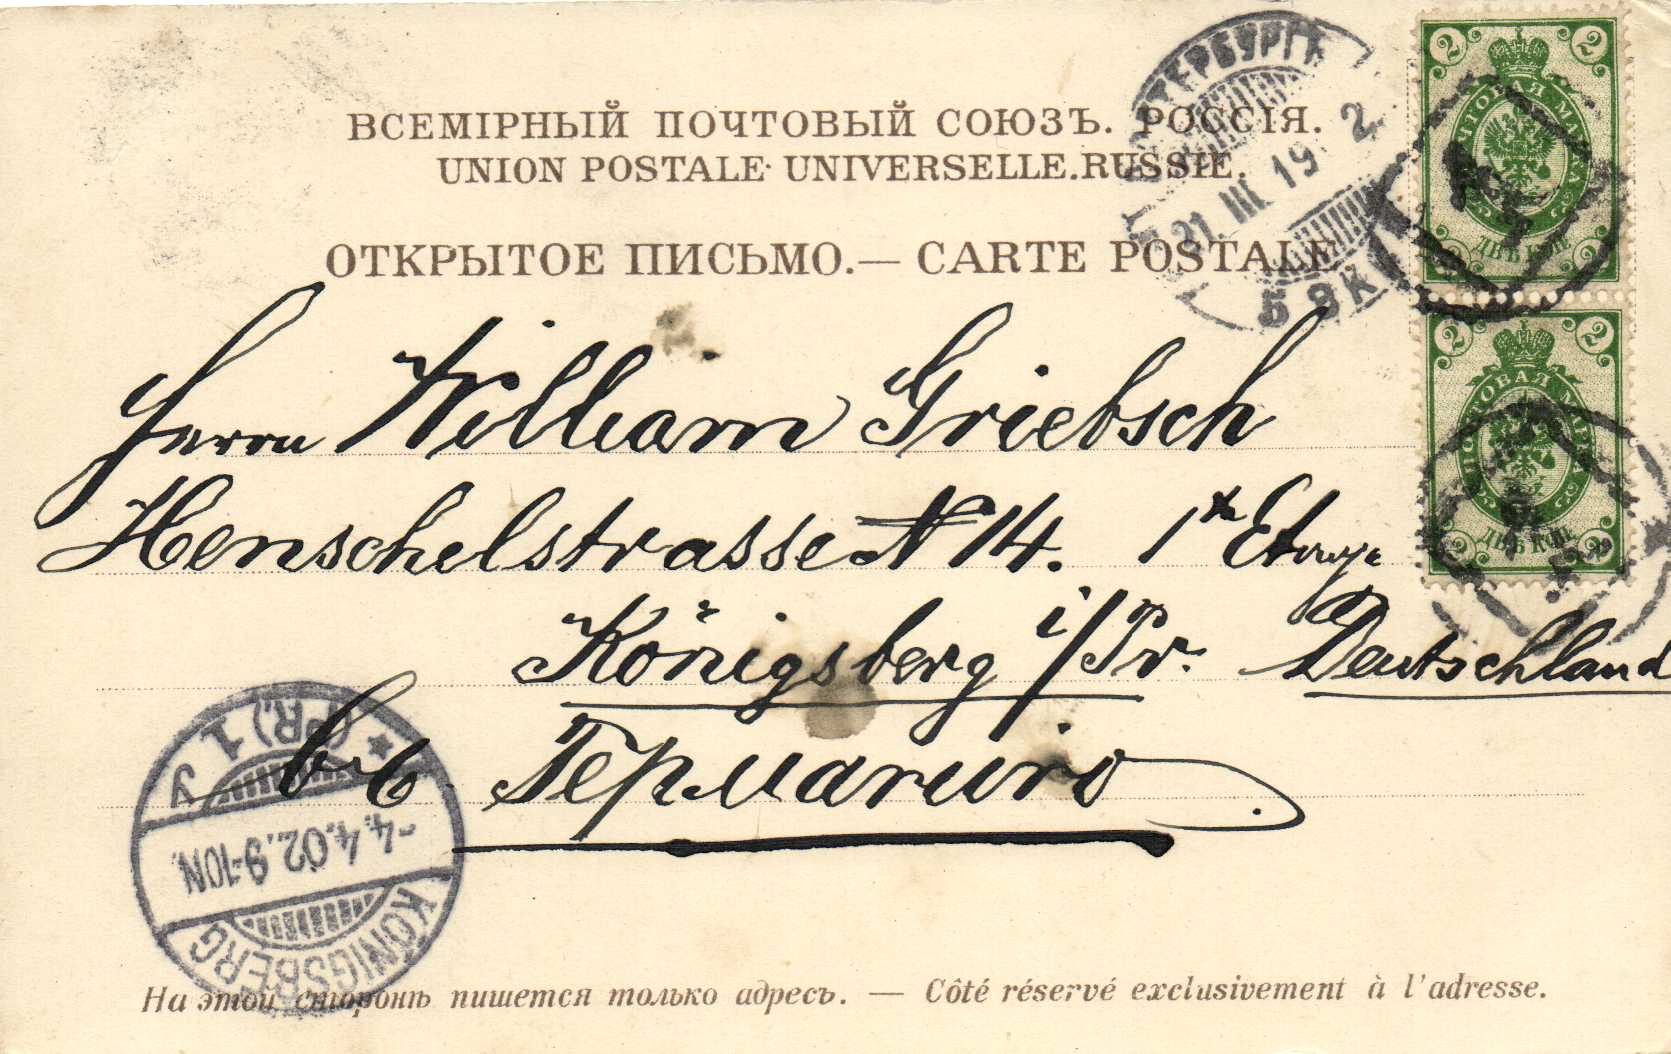 ВСЕМІРНЫЙ ПОЧТОВЫЙ СОЮЗЪ. РОССІЯ.
UNION POSTALE UNIVERSELLE. RUSSIE.
ОТКРЫТОЕ ПИСЬМО.— CARTE POSTALE
ПЕТЕРБУРГЪ
21. III 19 2
5 Э К
2 2
ПОЧТОВАЯ МАРКА
ДВѢ КОП.
2 2
ПОЧТОВАЯ МАРКА
ДВѢ КОП.
2 2
Herrn William Griebsch
Henschelstrasse N 14. 1te Etage
Königsberg i/Pr. Deutschland
въ Германію.
KÖNIGSBERG
-4.4.02. 9-10N.
★ (PR.) 1
На этой сторонѣ пишется только адресъ. — Côté réservé exclusivement à l'adresse.